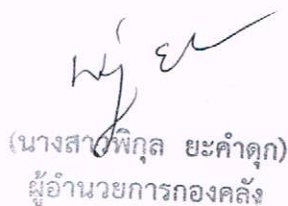 (นางสาวพิกุล ยะคำดุก)
ผู้อำนวยการกองคลัง